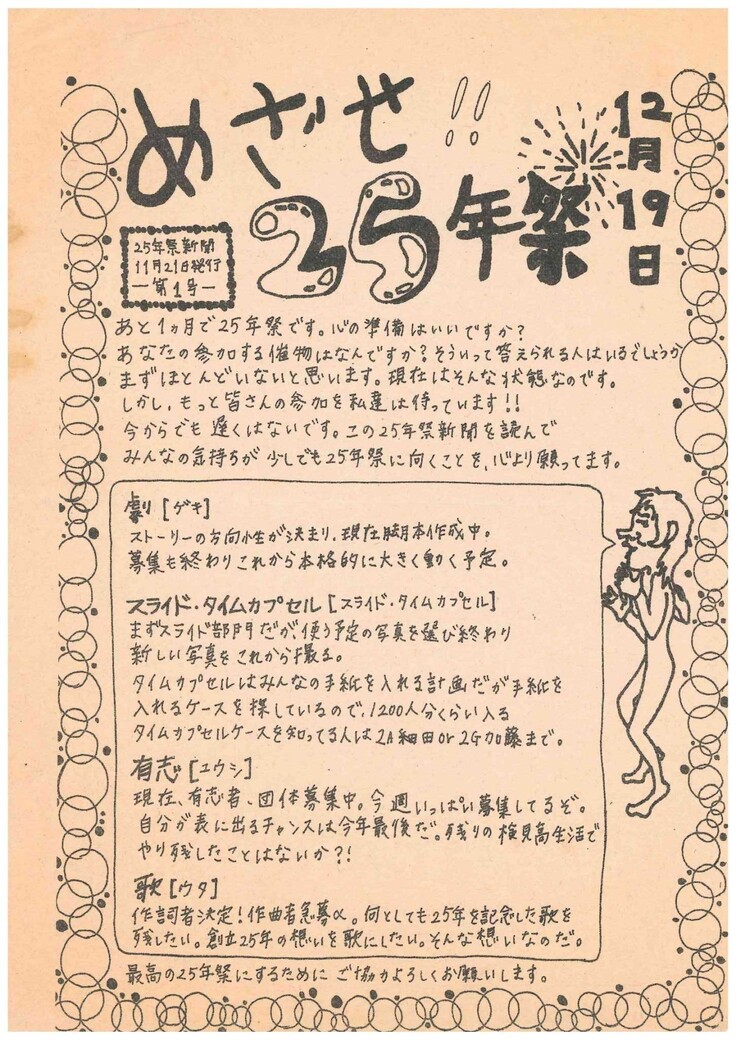 めざせ!!
25年祭
12月19日
25年祭新聞
11月21日発行
―第1号―
あと1ヵ月で25年祭です。心の準備はいいですか?
あなたの参加する催物はなんですか?そういって答えられる人はいるでしょうか
まずほとんどいないと思います。現在はそんな状態なのです。
しかし、もっと皆さんの参加を私達は待っています!!
今からでも遅くはないです。この25年祭新聞を読んで
みんなの気持ちが少しでも25年祭に向くことを、心より願ってます。
劇[ゲキ]
ストーリーの方向性が決まり、現在脚本作成中。
募集も終わりこれから本格的に大きく動く予定。
スライド・タイムカプセル[スライド・タイムカプセル]
まずスライド部門だが、使う予定の写真を選び終わり
新しい写真をこれから撮る。
タイムカプセルはみんなの手紙を入れる計画だが手紙を
入れるケースを探しているので、1200人分くらい入る
タイムカプセルケースを知ってる人は2A細田or2G加藤まで。
有志[ユウシ]
現在、有志者、団体募集中。今週いっぱい募集してるぞ。
自分が表に出るチャンスは今年最後だ。残りの検見高生活で
やり残したことはないか?!
歌[ウタ]
作詞者決定!作曲者急募α。何としても25年を記念した歌を
残したい。創立25年の想いを歌にしたい。そんな想いなのだ。
最高の25年祭にするためにご協力よろしくお願いします。